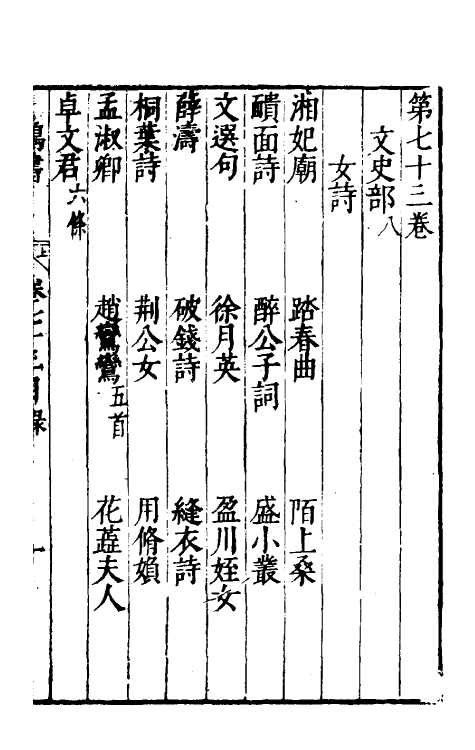 第七十三卷
文史部八
女詩
湘妃廟 踏春曲 陌上桑
靧面詩 醉公子詞 盛小叢
文選句 徐月英 盈川姪女
薛濤 破錢詩 縫衣詩
桐葉詩 荆公女 用脩嬪
孟淑卿 趙鸞鸞五首 花蕋夫人
卓文君六條
卷七十三目錄